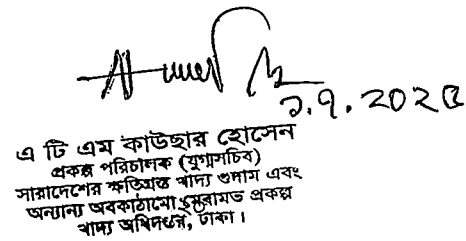 ১.৭.২০২৫
এ টি এম কাউছার হোসেন
প্রকল্প পরিচালক (যুগ্মসচিব)
সারাদেশের ক্ষতিগ্রস্ত খাদ্য গুদাম এবং
অন্যান্য অবকাঠামো মেরামত প্রকল্প
খাদ্য অধিদপ্তর, ঢাকা।